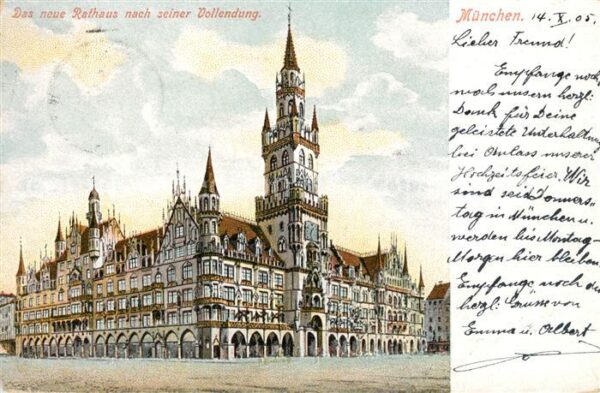 Das neue Rathaus nach seiner Vollendung.
München. 14. X. 05.
Lieber Freund!
Empfange noch
mals unsern herzl:
Dank für Deine
geleistete Unterhaltung
bei Anlass unserer
Hochzeitsfeier. Wir
sind seid Donners-
tag in München u.
werden bis Montag-
Morgen hier bleiben.
Empfange noch die
herzl: Grüsse von
Emma u. Albert